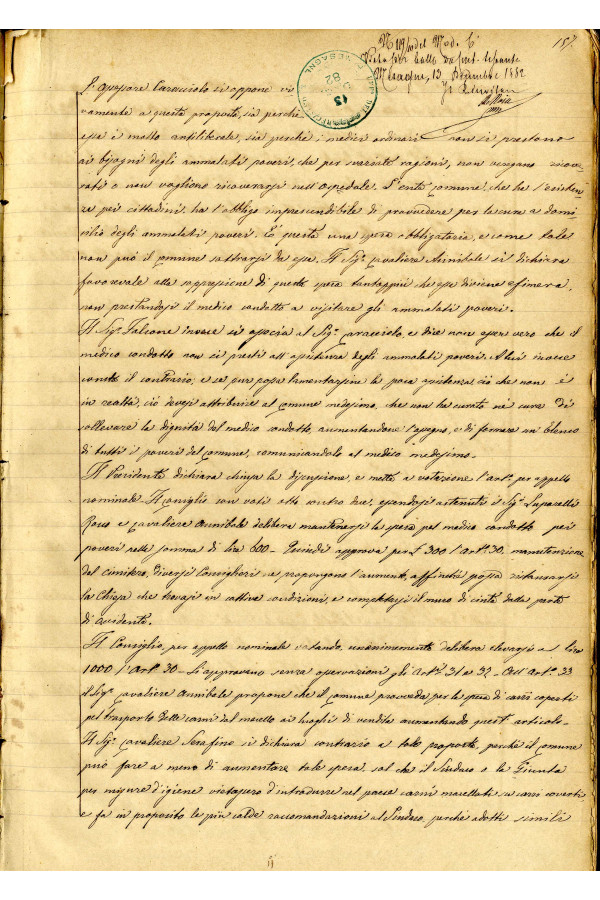 157.
N 119 del Mod. C
Vista per bollo
Mesagne, 13 Dicembre 1882
Il
MESAGNE
13
82
L'Assessore Caracciolo si oppone vi
vamente a questa proposta, sia perchè
essa è molto antiliberale, sia perchè i medici ordinari non si prestano
ai bisogni degli ammalati poveri, che per svariate ragioni, non vengono ricove
rati o non vogliono ricoverarsi nell'Ospedale. L'ente comune, che ha l'esisten
za pei cittadini, ha l'obbligo imprescindibile di provvedere per la cura a domi
cilio degli ammalati poveri. È questa una spesa obbligatoria, e come tale
non può il comune sottrarsi da essa. Il Sigr. cavaliere Annibale si dichiara
favorevole alla soppressione di questa spesa tantoppiù che essa diviene effimera,
non prestandosi il medico condotto a visitare gli ammalati poveri.
Il Sigr. Falcone invece si associa al Sigr. Caracciolo, e dice non esser vero che il
medico condotto non si presti all'assistenza degli ammalati poveri. A lui invece
consta il contrario; e se pur possa lamentarsene la poca assistenza, ciò che non è
in realtà, ciò devesi attribuire al Comune medesimo, che non ha curato nè cura di
sollevare la dignità del medico condotto, aumentandone l'assegno, e di formare un elenco
di tutti i poveri del comune, comunicandolo al medico medesimo.
Il Presidente dichiara chiusa la discussione, e mette a votazione l'art. per appello
nominale. Il Consiglio con voti otto contro due, essendosi astenuti i Sigr. Lupacelli
Rosso e Cavaliere Annibale delibera mantenersi la spesa pel medico condotto pei
poveri nella somma di lire 600 – Quindi approva per £ 300 l'Art. 30. manutenzione
del cimitero. Diversi Consiglieri ne propongono l'aumento, affinchè possa restaurarsi
la Chiesa che trovasi in cattive condizioni, e completarsi il muro di cinta dalla parte
di occidente.
Il Consiglio, per appello nominale votando, unanimemente delibera elevarsi a lire
1000 l'Art. 30 – Si approvano senza osservazioni gli Art. 31 e 32 – All'Art. 33
il Sigr. cavaliere Annibale propone che il comune provveda per la spesa di carri coperti
pel trasporto delle carni dal macello ai luoghi di vendita aumentando quest'articolo –
Il Sigr. cavaliere Serafino si dichiara contrario a tale proposta, perchè il comune
può fare a meno di aumentare tale spesa, sol che il Sindaco o la Giunta
per misure d'igiene vietassero d'introdurre nel paese carni macellate su carri scoverti
e fa in proposito le più calde raccomandazioni al Sindaco, perchè adotti simile